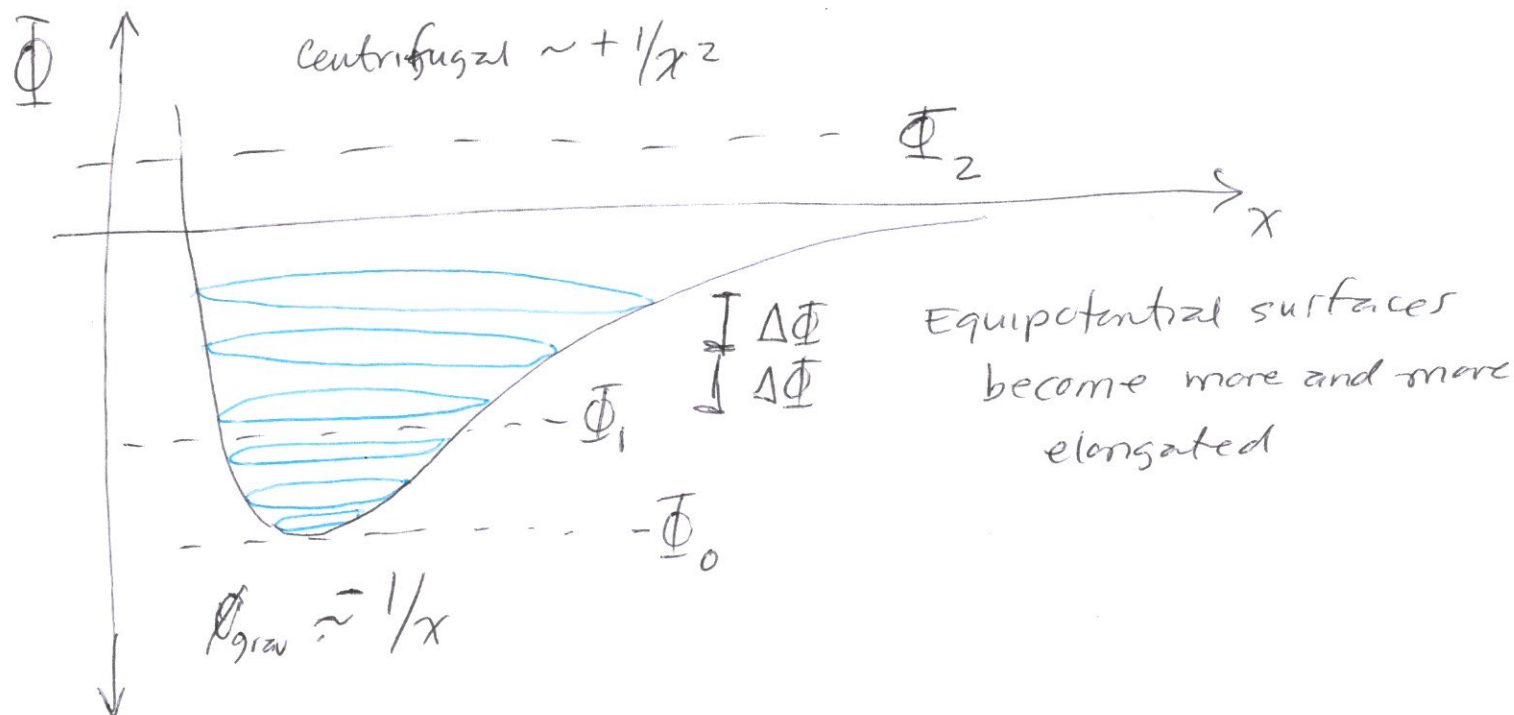 Φ
Centrifugal ~ + 1/x²
Φ₂
x
I ΔΦ
I ΔΦ
Equipotential surfaces
become more and more
elongated
-Φ₁
-Φ₀
Φgrav ~ - 1/x